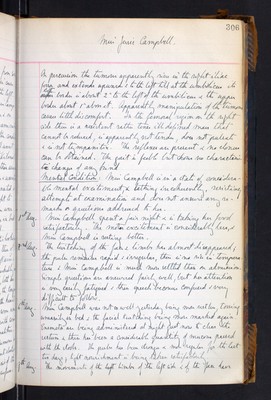 306
Miss Janie Campbell.
On percussion the tumour apparently rises in the right iliac
fossa and extends upward to the left till at the umbilicus its
border is about 2" to the left of the umbilicus & the upper
border about 5" above it. Apparently manipulation of the tumour
causes little discomfort. In the femoral region on the right
side there is a resilient rather tense ill defined mass that
cannot be reduced, is apparently not tender, does not pulsate
& is not tympanitic. The reflexes are present & no clonus
can be obtained. The gait is feeble but shows no characteristic
change of any kind.
Mental Condition: Miss Campbell is in a state of consider-
able mental excitement, is talking incoherently, resisting
attempts at examination and does not answer any re-
marks or questions addressed to her.
1st day. Miss Campbell spent a fair night & is taking her food
satisfactorily. The excitement is considerably less,
Miss Campbell is resting better.
2nd day. The twitching of the limbs has almost disappeared,
the pulse remains rapid & irregular, there is no rise in tempera-
ture & Miss Campbell is much more settled than on admission.
Simple questions are answered fairly well, but the attention
is very easily fatigued & then speech becomes confused & very
difficult to follow.
day. Miss Campbell was not so well yesterday, being more restless, turning
in bed & the facial twitching being more marked again.
Enemata are being administered at night just now & clear the
rectum & there has been a considerable quantity of mucous passed
with the stools. The pulse has been stronger & more regular for the last
two days, & nourishment is being taken satisfactorily.
day. The movements of the left limbs & the left side of the face have